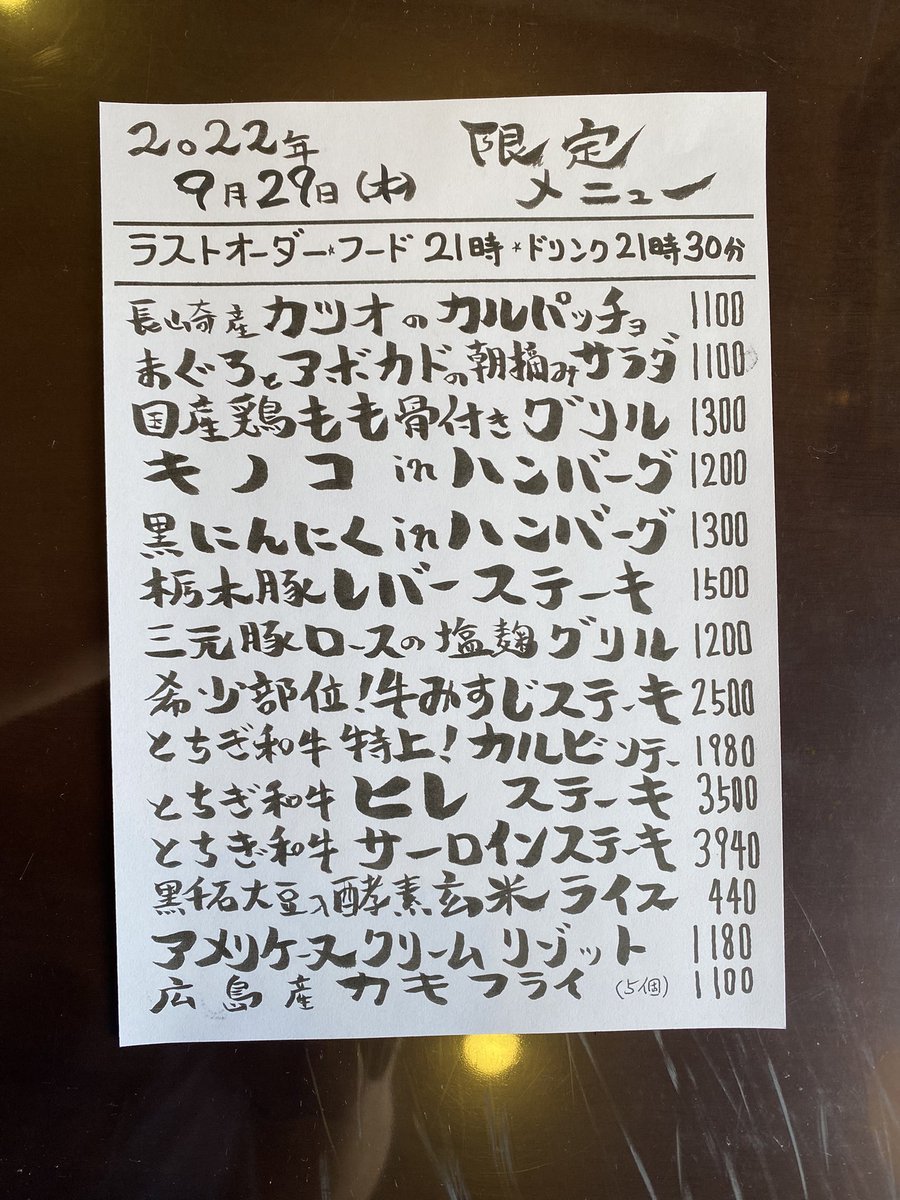 2022年 限定
9月29日(木) メニュー
ラストオーダー*フード21時*ドリンク21時30分
長崎産カツオのカルパッチョ 1100
まぐろとアボカドの朝摘みサラダ 1100
国産鶏もも骨付きグリル 1300
キノコinハンバーグ 1200
黒にんにくinハンバーグ 1300
栃木豚レバーステーキ 1500
三元豚ロースの塩麹グリル 1200
希少部位!牛みすじステーキ 2500
とちぎ和牛特上!カルビソテー 1980
とちぎ和牛ヒレステーキ 3500
とちぎ和牛サーロインステーキ 3940
黒千石大豆入酵素玄米ライス 440
アメリケーヌクリームリゾット 1180
広島産カキフライ(5個) 1100